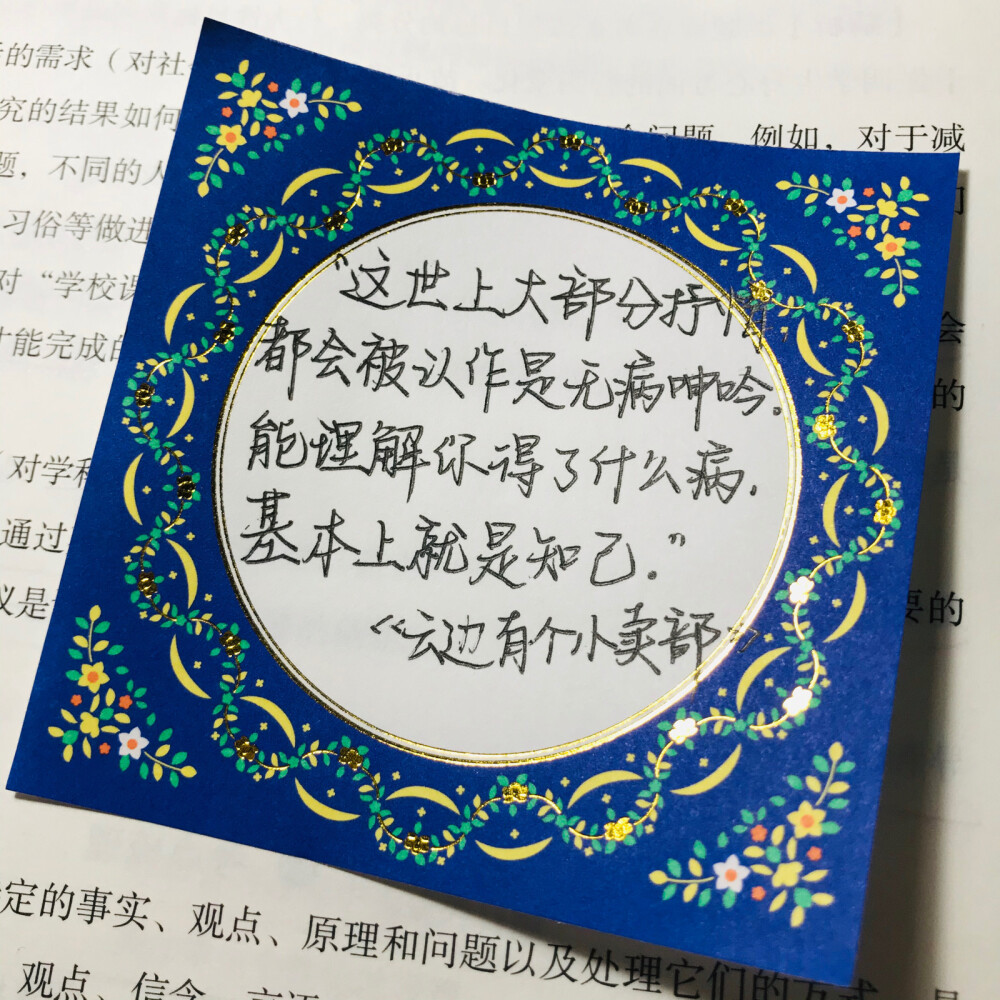 的需求（对社
究的结果如何
问题，例如，对于减
题，不同的人
习俗等做进
对“学校课
会
才能完成的
的
“这世上大部分抒情，
都会被认作是无病呻吟。
能理解你得了什么病，
基本上就是知己。”
《云边有个小卖部》
（对学科
通过
议是
要的
定的事实、观点、原理和问题以及处理它们的方式，是
观点、信念、言语